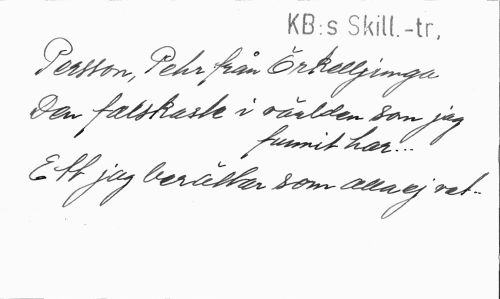 KB:s Skill.-tr,
Persson, Pehr från Örkelljunga
Den falskaste i världen son jag
funnit har...
Ett jag berättar som alla ej vet..